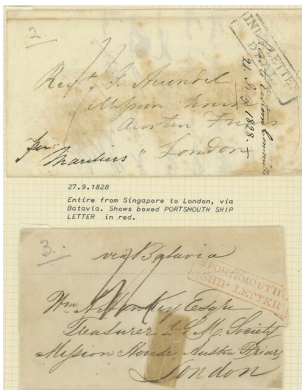 2.
INDIA LETTER
DEAL
Revd. J. Arundel
Mission House
Austin Friars
London
per
27.9.1828
Entire from Singapore to London, via
Batavia. Shows boxed PORTSMOUTH SHIP
LETTER in red.
3.
via Batavia
PORTSMOUTH
SHIP LETTER
Wm. A. Hankey Esqre
Treasurer L. M. Society
Mission House Austin Friars
London